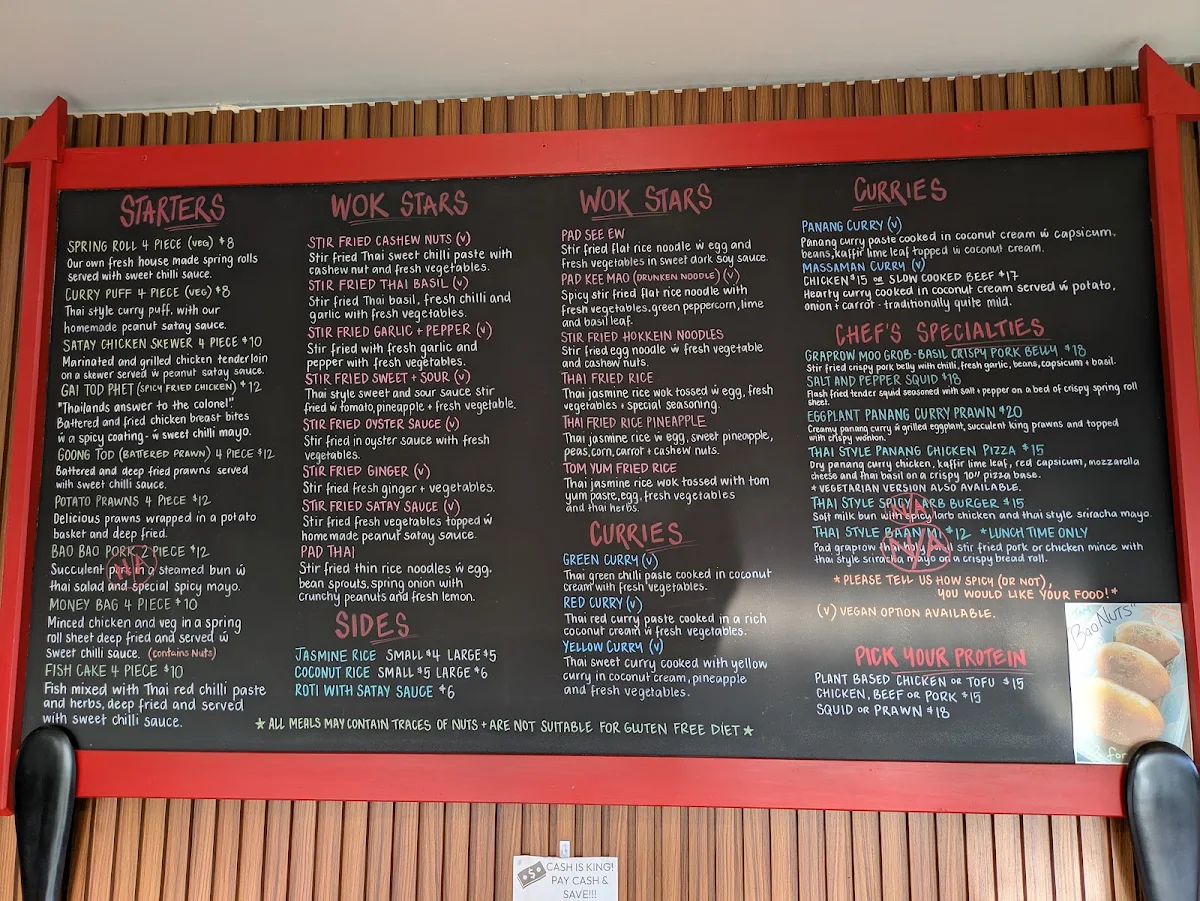 STARTERS
SPRING ROLL 4 PIECE (VEG) $8
Our own fresh house made spring rolls
served with sweet chilli sauce.
CURRY PUFF 4 PIECE (VEG) $8
Thai style curry puff, with our
homemade peanut satay sauce.
SATAY CHICKEN SKEWER 4 PIECE $10
Marinated and grilled chicken tenderloin
on a skewer served w peanut satay sauce.
GAI TOD PHET (SPICY FRIED CHICKEN) $12
"Thailands answer to the colonel".
Battered and fried chicken breast bites
w a spicy coating - w sweet chilli mayo.
GOONG TOD (BATTERED PRAWN) 4 PIECE $12
Battered and deep fried prawns served
with sweet chilli sauce.
POTATO PRAWNS 4 PIECE $12
Delicious prawns wrapped in a potato
basket and deep fried.
BAO BAO PORK 2 PIECE $12
Succulent pork in a steamed bun w
thai salad and special spicy mayo.
N/A
MONEY BAG 4 PIECE $10
Minced chicken and veg in a spring
roll sheet deep fried and served w
sweet chilli sauce. (contains Nuts)
FISH CAKE 4 PIECE $10
Fish mixed with Thai red chilli paste
and herbs, deep fried and served
with sweet chilli sauce.
WOK STARS
STIR FRIED CASHEW NUTS (V)
Stir fried Thai sweet chilli paste with
cashew nut and fresh vegetables.
STIR FRIED THAI BASIL (V)
Stir fried Thai basil, fresh chilli and
garlic with fresh vegetables.
STIR FRIED GARLIC + PEPPER (V)
Stir fried with fresh garlic and
pepper with fresh vegetables.
STIR FRIED SWEET + SOUR (V)
Thai style sweet and sour sauce stir
fried w tomato, pineapple + fresh vegetable.
STIR FRIED OYSTER SAUCE (V)
Stir fried in oyster sauce with fresh
vegetables.
STIR FRIED GINGER (V)
Stir fried fresh ginger + vegetables.
STIR FRIED SATAY SAUCE (V)
Stir fried fresh vegetables topped w
home made peanut satay sauce.
PAD THAI
Stir fried thin rice noodles w egg,
bean sprouts, spring onion with
crunchy peanuts and fresh lemon.
SIDES
JASMINE RICE SMALL $4 LARGE $5
COCONUT RICE SMALL $5 LARGE $6
ROTI WITH SATAY SAUCE $6
WOK STARS
PAD SEE EW
Stir fried flat rice noodle w egg and
fresh vegetables in sweet dark soy sauce.
PAD KEE MAO (DRUNKEN NOODLE) (V)
Spicy stir fried flat rice noodle with
fresh vegetables, green peppercorn, lime
and basil leaf.
STIR FRIED HOKKEIN NOODLES
Stir fried egg noodle w fresh vegetable
and cashew nuts.
THAI FRIED RICE
Thai jasmine rice wok tossed w egg, fresh
vegetables + special seasoning.
THAI FRIED RICE PINEAPPLE
Thai jasmine rice w egg, sweet pineapple,
peas, corn, carrot + cashew nuts.
TOM YUM FRIED RICE
Thai jasmine rice wok tossed with tom
yum paste, egg, fresh vegetables
and thai herbs.
CURRIES
GREEN CURRY (V)
Thai green chilli paste cooked in coconut
cream with fresh vegetables.
RED CURRY (V)
Thai red curry paste cooked in a rich
coconut cream w fresh vegetables.
YELLOW CURRY (V)
Thai sweet curry cooked with yellow
curry in coconut cream, pineapple
and fresh vegetables.
★ ALL MEALS MAY CONTAIN TRACES OF NUTS + ARE NOT SUITABLE FOR GLUTEN FREE DIET ★
CURRIES
PANANG CURRY (V)
Panang curry paste cooked in coconut cream w capsicum,
beans, kaffir lime leaf topped w coconut cream.
MASSAMAN CURRY (V)
CHICKEN $15 OR SLOW COOKED BEEF $17
Hearty curry cooked in coconut cream served w potato,
onion + carrot - traditionally quite mild.
CHEF'S SPECIALTIES
GRAPROW MOO GROB - BASIL CRISPY PORK BELLY $18
Stir fried crispy pork belly with chilli, fresh garlic, beans, capsicum + basil.
SALT AND PEPPER SQUID $18
Flash fried tender squid seasoned with salt + pepper on a bed of crispy spring roll
sheet.
EGGPLANT PANANG CURRY PRAWN $20
Creamy panang curry w grilled eggplant, succulent king prawns and topped
with crispy wonton.
THAI STYLE PANANG CHICKEN PIZZA $15
Dry panang curry chicken, kaffir lime leaf, red capsicum, mozzarella
cheese and thai basil on a crispy 10" pizza base.
* VEGETARIAN VERSION ALSO AVAILABLE.
THAI STYLE SPICY LARB BURGER $15
Soft milk bun with spicy larb chicken and thai style sriracha mayo.
N/A
THAI STYLE BAAN MI $12 *LUNCH TIME ONLY
Pad graprow thai basil stir fried pork or chicken mince with
thai style sriracha mayo on a crispy bread roll.
N/A
* PLEASE TELL US HOW SPICY (OR NOT),
YOU WOULD LIKE YOUR FOOD! *
(V) VEGAN OPTION AVAILABLE.
PICK YOUR PROTEIN
PLANT BASED CHICKEN OR TOFU $15
CHICKEN, BEEF OR PORK $15
SQUID OR PRAWN $18
"Bao NUTS"
for
CASH IS KING!
PAY CASH &
SAVE!!!